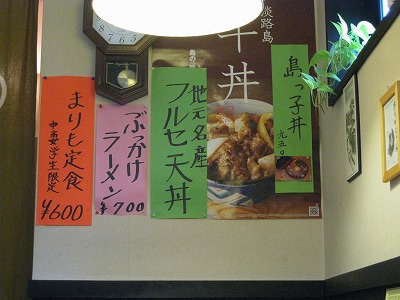 8 7 6 5
まりも定食
¥600
ぶっかけ
ラーメン
¥700
地元名産
フルセ天丼
淡路島
牛丼
島っ子丼